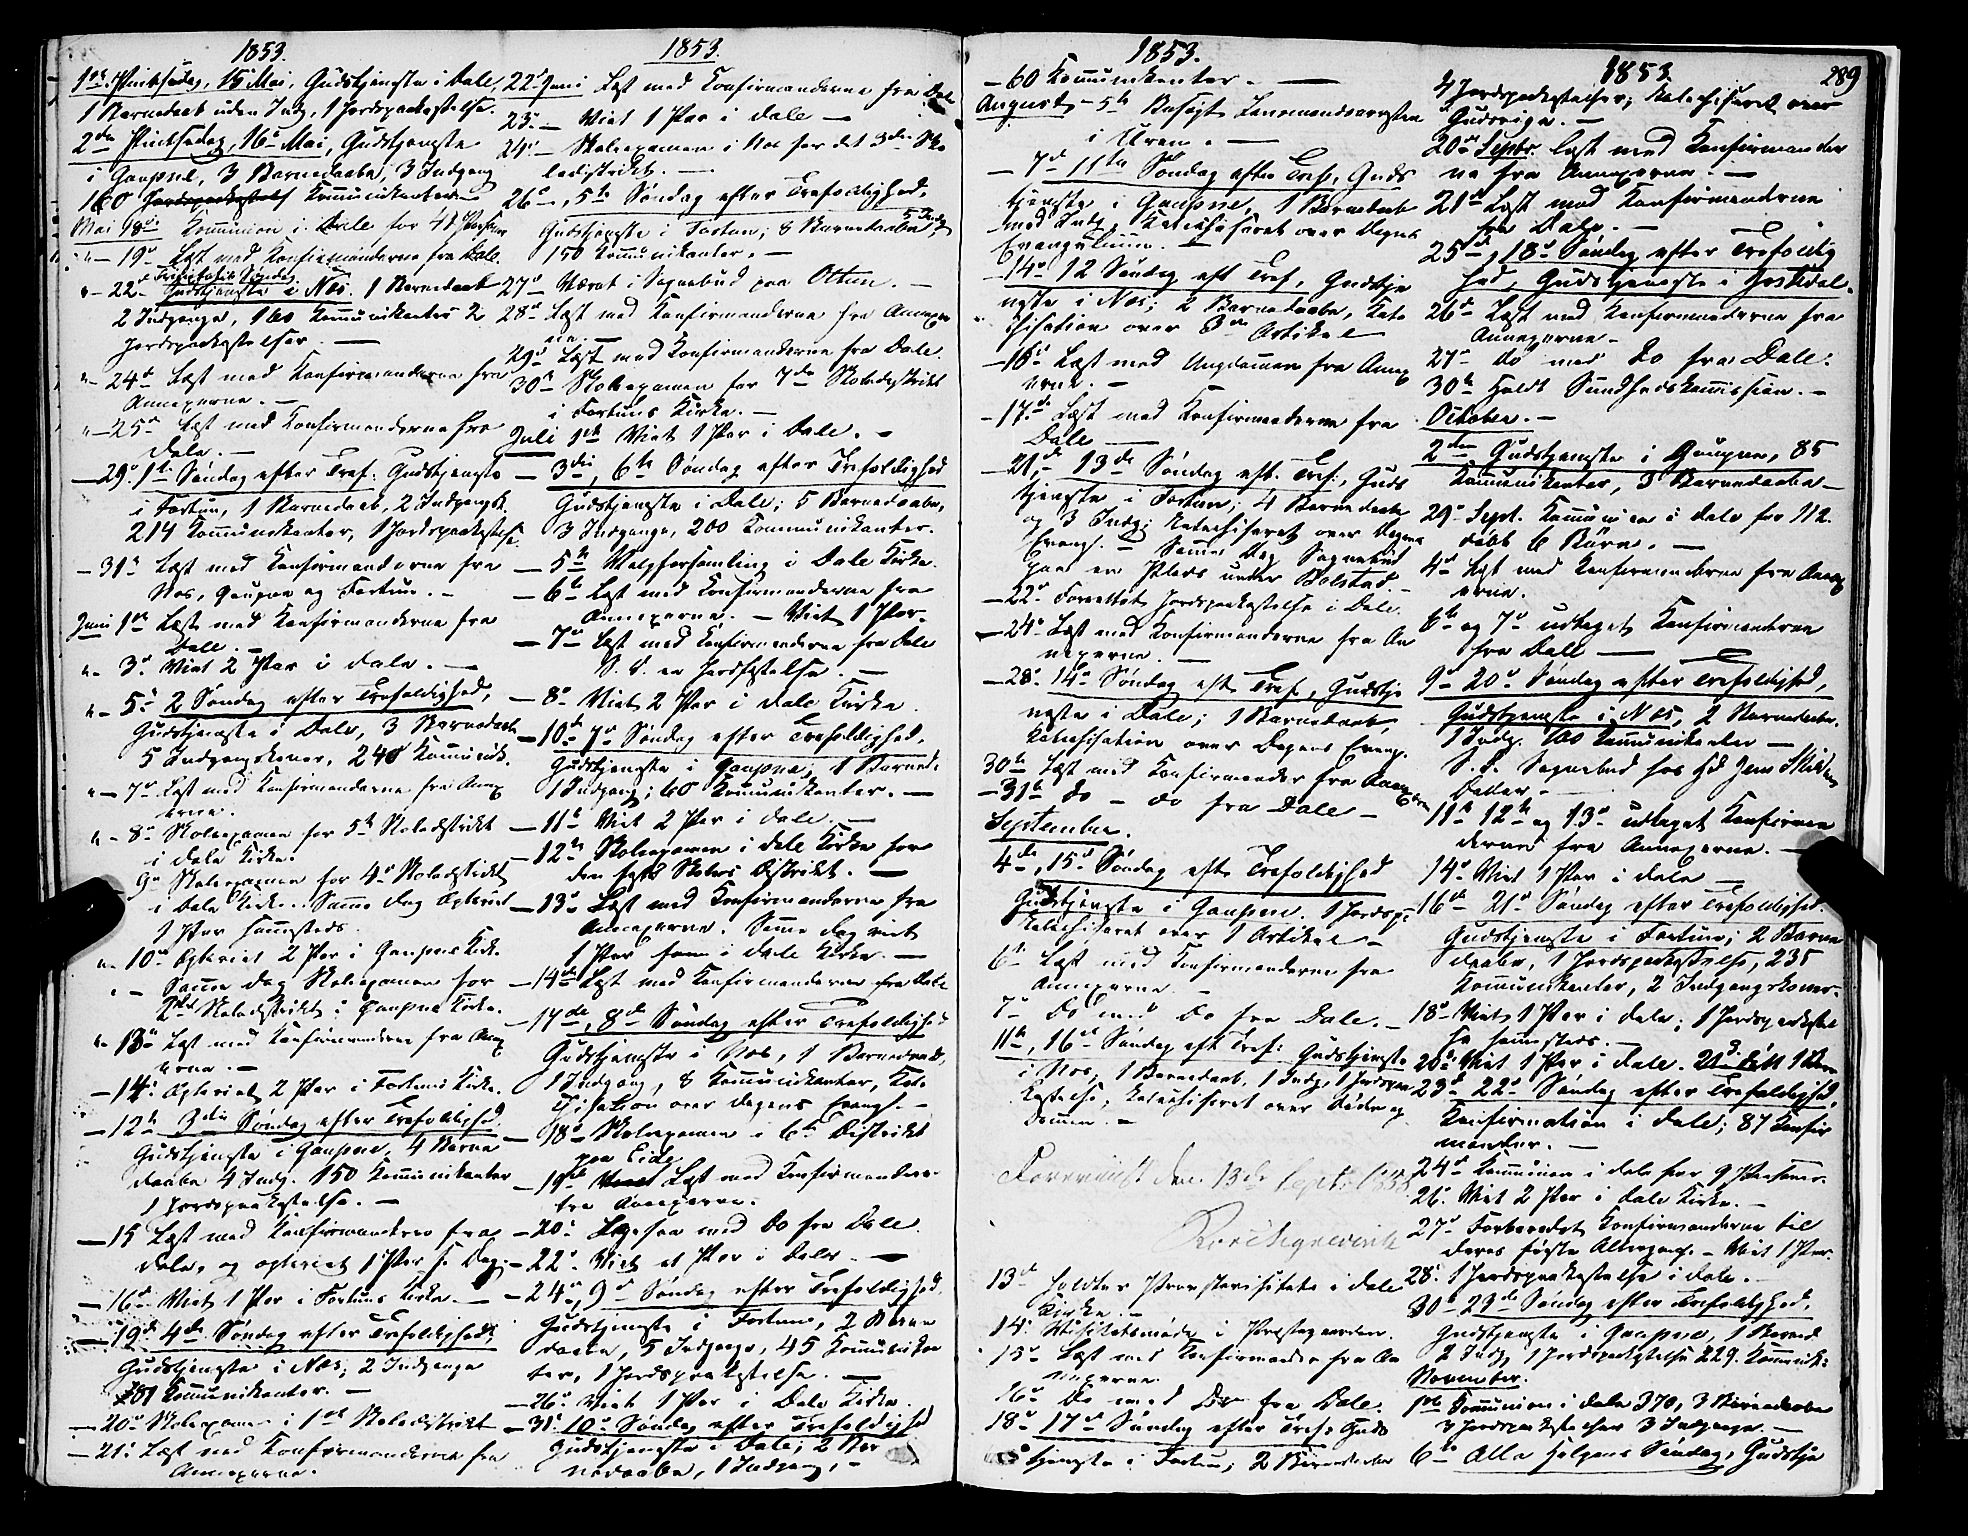 1853.
1ste Pinksedag, 15 Mai, Gudstjeneste i Dale,
1 Barnedaab uden Indg, 1 Jordspaakastelse.
2den Pinksedag, 16de Mai, Gudstjeneste
i Gaupne, 3 Barnedaabe, 3 Indgang
160 Kommunikanter
Mai 18de Kommunion i Dale for 48 Personer
" – 19de Læst med Konfirmanderne fra Dale.
Trinitatis Søndag
" – 22de Gudstjeneste i Nes. 1 Barnedaab
2 Indgange, 160 Kommunikanter 2
Jordspaakastelser. –
" – 24de Læst med Konfirmanderne fra
Annexerne. –
" – 25de Læst med Konfirmanderne fra
Dale. –
– 29de 1ste Søndag efter Tref: Gudstjeneste
i Fortun, 1 Barnedaab, 2 Indgangsk.
214 Kommunikanter, 1 Jordspaakastelse.
– 31te Læst med Konfirmanderne fra
Nes, Gaupne og Fortun. –
Juni 1ste Læst med Konfirmanderne fra
Dale. –
" – 3de Viet 2 Par i Dale. –
" – 5te 2 Søndag efter Trefoldighed,
Gudstjeneste i Dale, 3 Barnedaabe
5 Indgangskoner, 240 Kommunik.
" – 7de Læst med Konfirmanderne fra Annex
erne.
" – 8de Skoleexamen for 5te Skoledistrikt
i Dale Kirke.
9de Skoleexamen for 4de Skoledistrikt
i Dale Kirke. Samme Dag Ægteviet
1 Par sammesteds.
" – 10de Ægteviet 2 Par i Gaupne Kirk.
" – Samme Dag Skoleexamen for
2det Skoledistrikt i Gaupne Kirke.
" – 13de Læst med Konfirmanderne fra Annex
erne. –
– 14de Ægteviet 2 Par i Fortuns Kirke.
– 12te 3die Søndag efter Trefoldighed.
Gudstjeneste i Gaupne, 4 Barne
daabe 4 Indg. 150 Kommunikanter
1 Jordspaakastelse. –
– 15 Læst med Konfirmanderne fra
Dale, og ægteviet 1 Par s. Dag. –
– 16de Viet 1 Par i Fortuns Kirke. –
– 19de 4de Søndag efter Trefoldighed;
Gudstjeneste i Nes; 2 Indgange
101 Kommunikanter. –
– 20de Skoleexamen i 1ste Skoledistrikt
– 21de Læst med Konfirmanderne fra
Annexerne.
1853.
22de Juni Læst med Konfirmanderne fra Dale
23de – Viet 1 Par i Dale –
24de – Skoleexamen i Nes for det 3die Sko
ledistrikt. –
26de –, 5te Søndag efter Trefoldighed,
Gudstjeneste i Fortun; 8 Barnedaabe, 5 Indg
150 Kommunikanter. –
27de Været i Sognebud paa Ottun. –
28de Læst med Konfirmanderne fra Annexer
ne. –
29de Læst med Konfirmanderne fra Dale.
30te Skoleexamen for 7de Skoledistrikt
i Fortuns Kirke. –
Juli 1ste Viet 1 Par i Dale. –
– 3die, 6te Søndag efter Trefoldighed
Gudstjeneste i Dale; 5 Barnedaabe,
3 Indgange, 200 Kommunikanter.
– 5te Valgforsamling i Dale Kirke.
– 6te Læst med Konfirmanderne fra
Annexerne. – Viet 1 Par. –
– 7de Læst med Konfirmanderne fra Dale
S. D. en Jordfæstelse. –
– 8de Viet 2 Par i Dale Kirke.
– 10de 7de Søndag efter Trefoldighed,
Gudstjeneste i Gaupne, 1 Barned.
1 Indgang; 60 Kommunikanter. –
– 11te Viet 2 Par i Dale. –
– 12te Skoleexamen i Dale Kirke for
den faste Skoles Distrikt. –
– 13de Læst med Konfirmanderne fra
Annexerne. Samme Dag viet
1 Par sam i Dale Kirke. –
– 14de Læst med Konfirmanderne fra Dale
– 17de, 8de Søndag efter Trefoldighed
Gudstjeneste i Nes, 1 Barnedaab,
1 Indgang, 8 Kommunikanter, Kat.
chisation over Dagens Evangl. –
– 18de Skoleexamen i 6te Distrikt
paa Eide.
– 19de Læst med Konfirmanderne
fra Annexerne.
– 20de Læsen med Do fra Dale.
– 22de Viet et Par i Dale. –
– 24de, 9de Søndag efter Trefoldighed,
Gudstjeneste i Fortun, 2 Barne
daabe, 5 Indgange, 45 Kommunikan
ter, 1 Jordspaakastelse. –
– 26de Viet 1 Par i Dale Kirke.
– 31te 10de Søndag efter Trefoldighed
Gudstjeneste i Dale; 2 Bar
nedaabe, 1 Indgang, –
1853.
– 60 Kommunikanter. –
August – 5te Besøgt Lensmandsarresten
i Uren. –
– 7de 11te Søndag efter Tref, Guds
tjeneste i Gaupne, 1 Barnedaab
med Indg, Katechiseret over Dagens
Evangelium. –
14de 12 Søndag eft Tref, Gudstje
neste i Nes; 2 Barnedaabe, Kate
chisation over 3die Artikel
– 16de Læst med Ungdommen fra Annex
erne. –
– 17de Læst med Konfirmanderne fra
Dale –
– 21de 13de Søndag eft. Tref:, Guds
tjeneste i Fortun; 4 Barnedaabe
og 3 Indg; Katechiseret over Dagens
Evangl. – Samme Dag Sognebud
paa en Plads under Bolstad. –
– 22de Forrettet Jordspaakastelse i Dale.
– 24de Læst med Konfirmanderne fra An
nexerne. –
– 28de 14de Søndag eft. Tref, Gudstje
neste i Dale; 1 Barnedaab,
Katechisation over Dagens Evang.
30te Læst med Konfirmander fra Annexerne
– 31te do – do fra Dale –
September.
4de, 15de Søndag eft Trefoldighed
Gudstjeneste i Gaupne. 1 Jordsp;
Katechiseret over 1 Artikel –
6te Læst med Konfirmanderne fra
Annexerne. –
7de Do med Do fra Dale. –
11te, 16de Søndag eft Tref: Gudstjeneste
i Nes; 1 Barnedaab, 1 Indg, 1 Jordspaa
kastelse; Katechiseret over Daab og
Dommen. –
Foreviist den 13de Septr 1853
13de Holdtes Provstevisitats i Dale
Kirke. –
14de Visitatsmøde i Præstegaarden.
15de Læst med Konfirmander fra An
nexerne.
16de Do med Do fra Dale.
18de 17de Søndag efter Tref: Guds
tjeneste i Fortun; 2 Barnedaabe
1853.
289
4 Jordspaakastelser; Katechiseret over
20de Septbr. Læst med Konfirmander
ne fra Annexerne. –
21de Læst med Konfirmanderne
fra Dale. –
25de, 18de Søndag efter Trefoldig
hed, Gudstjeneste i Jostedal.
26de Læst med Konfirmanderne fra
Annexerne –
27de do med Do fra Dale.
30te Holdt Sundhedskomission. –
October. –
2den Gudstjeneste i Gaupne, 85
Kommunikanter, 3 Barnedaabe –
29de Sept. Kommunion i Dale for 112.
døbt 6 Børn. –
4de Læst med Konfirmanderne fra Annex
erne.
6te og 7de udtaget Konfirmanderne
fra Dale –
9de 20de Søndag efter Trefoldighed,
Gudstjeneste i Nes, 2 Barnedaabe.
1 Indg. 100 Kommunikanter –
S. D. Sognebud hos Jens
11te 12te og 13de udtaget Konfirman
derne fra Annexerne. –
14de Viet 1 Par i Dale –
16de 21de Søndag efter Trefoldighed.
Gudstjeneste i Fortun; 2 Barne
daabe, 1 Jordspaakastelse, 235
Kommunikanter, 2 Indgangskoner.
18de Viet 1 Par i Dale; 1 Jordspaakastel
se sammesteds. –
20de Viet 1 Par i Dale.
23de 22de Søndag efter Trefoldighed,
Konfirmation i Dale; 87 Konfir
mander. –
24de Kommunion i Dale for 9 Personer.
26de Viet 2 Par i Dale Kirke. –
27de Forberedet Konfirmanderne til
deres første Altergang. – Viet 1 Par.
28de 1 Jordspaakastelse i Dale. –
30te 23de Søndag efter Trefoldighed.
Gudstjeneste i Gaupne, 1 Barned
2 Indg, 1 Jordspaakastelse 229. Kommunik:
November.
1ste Kommunion i Dale 370, 3 Barnedaabe
4 Jordspaakastelser 3 Indgange. –
6te Alle Helgens Søndag, Gudstje